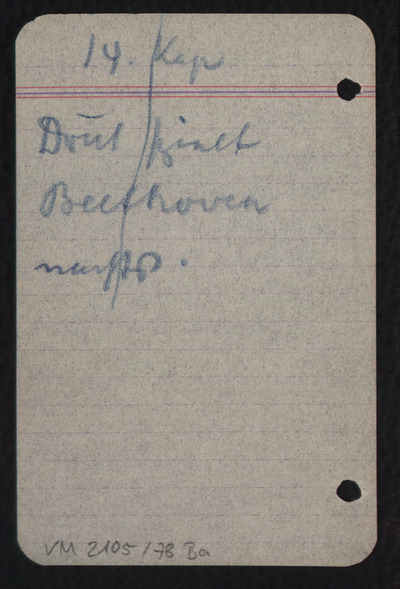 14. Kap
spielt
Beethoven
nachts.
VM 2105/78 Ba